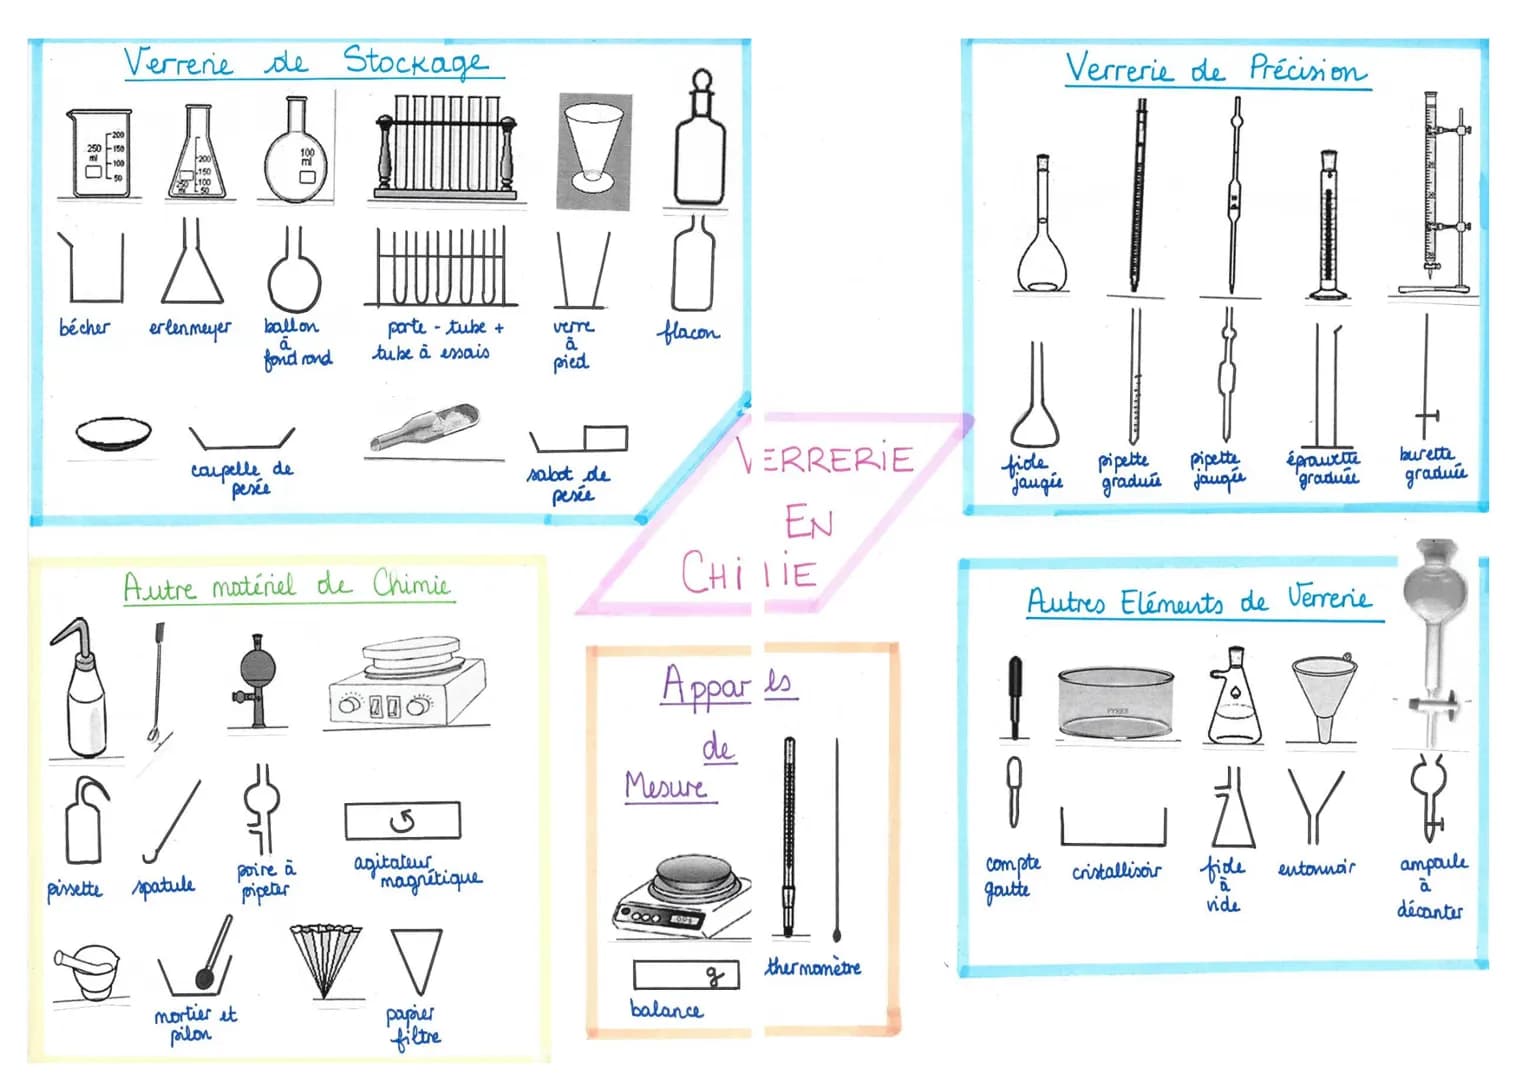 Verrerie de Stockage
250
ml
200
150
100
50
200
150
100
50
250
ml
100
ml
bécher
erlenmeyer
ballon
à
fond rond
porte - tube +
tube à essais
verre
à
pied
flacon
coupelle de
pesée
sabot de
pesée
Verrerie de Précision
fiole
jaugée
pipette
graduée
pipette
jaugée
éprouvette
graduée
burette
graduée
VERRERIE
EN
CHIMIE
Autre matériel de Chimie
pissette
spatule
poire à
pipeter
agitateur
magnétique
mortier et
pilon
papier
filtre
Appar ls
de
Mesure
g
balance
thermomètre
Autres Eléments de Verrerie
PYREX
compte
goutte
cristallisoir
fiole
à
vide
entonnoir
ampoule
à
décanter